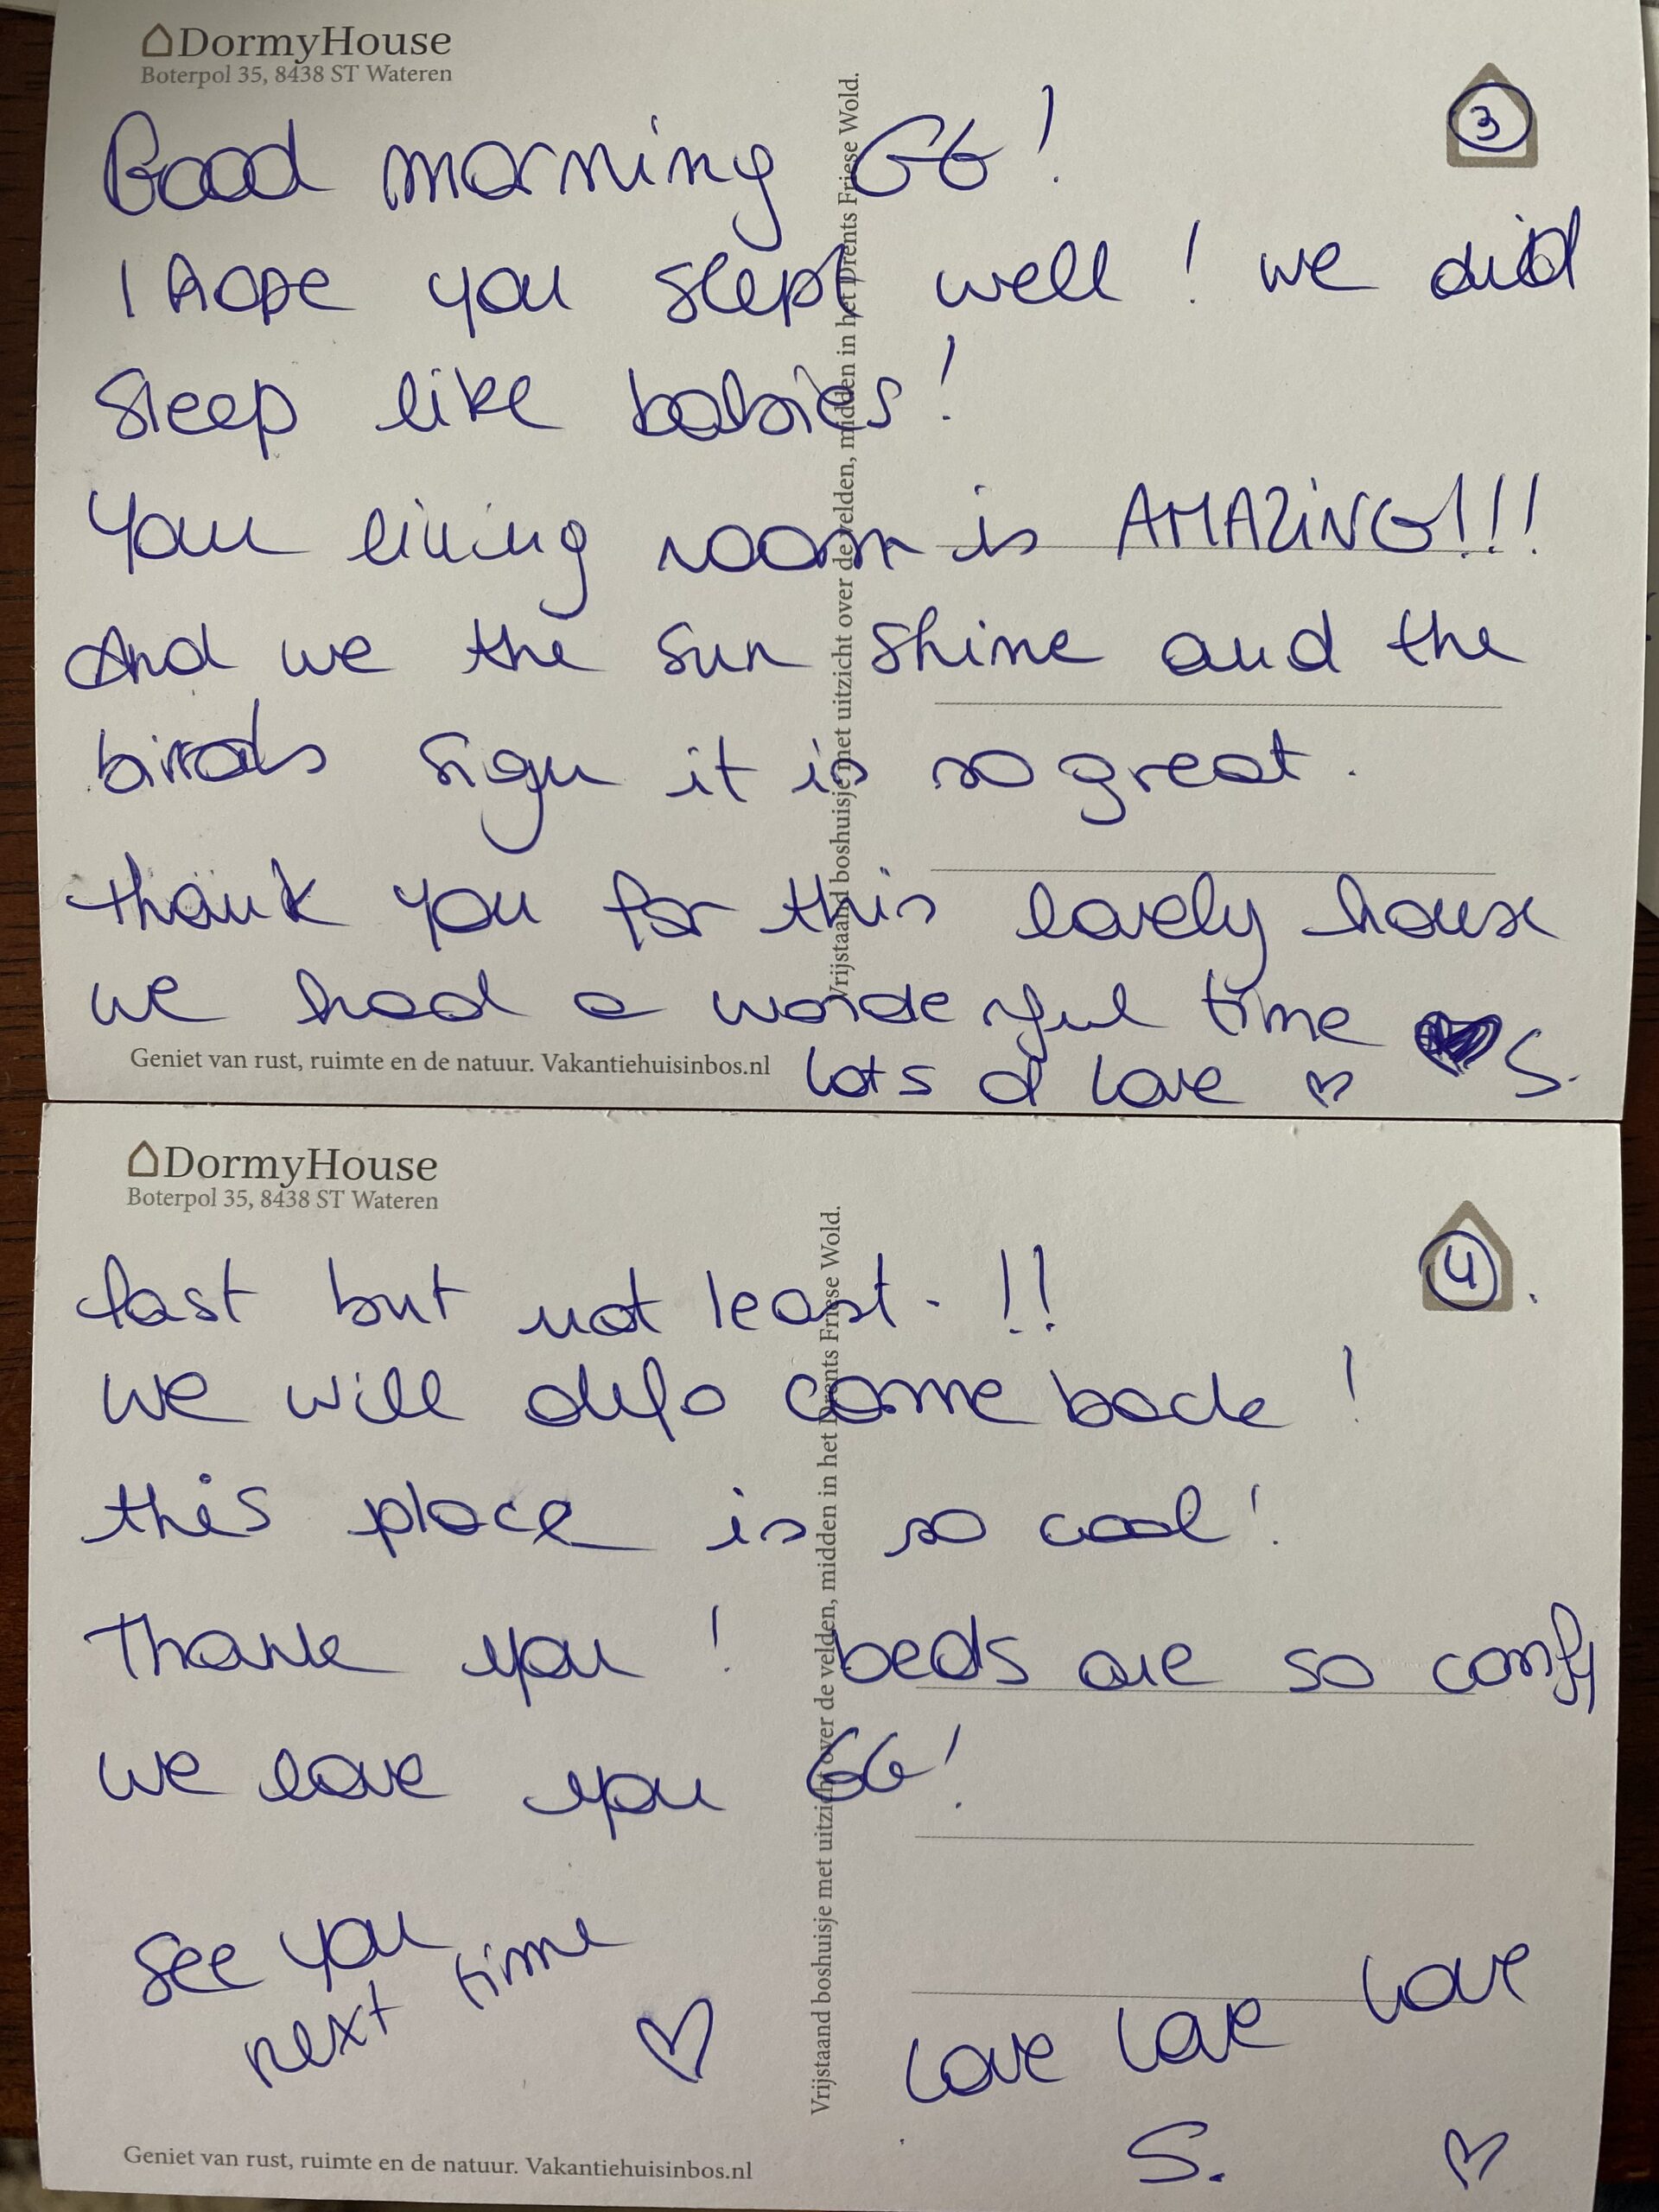 DormyHouse
Boterpol 35, 8438 ST Wateren
3
Good morning GG!
I hope you slept well! we did
sleep like babies!
Your living room is AMAZiNG!!!
And we the sun shine and the
birds sign it is so great.
thank you for this lovely house
we had a wonderful time ♥ S.
lots of love ♡
Vrijstaand boshuisje met uitzicht over de velden, midden in het Drents Friese Wold.
Geniet van rust, ruimte en de natuur. Vakantiehuisinbos.nl
DormyHouse
Boterpol 35, 8438 ST Wateren
4
last but not least. !!
we will defo come back!
this place is so cool!
Thank you! beds are so comfy
we love you GG!
see you
next time ♡
love love love
S. ♡
Vrijstaand boshuisje met uitzicht over de velden, midden in het Drents Friese Wold.
Geniet van rust, ruimte en de natuur. Vakantiehuisinbos.nl